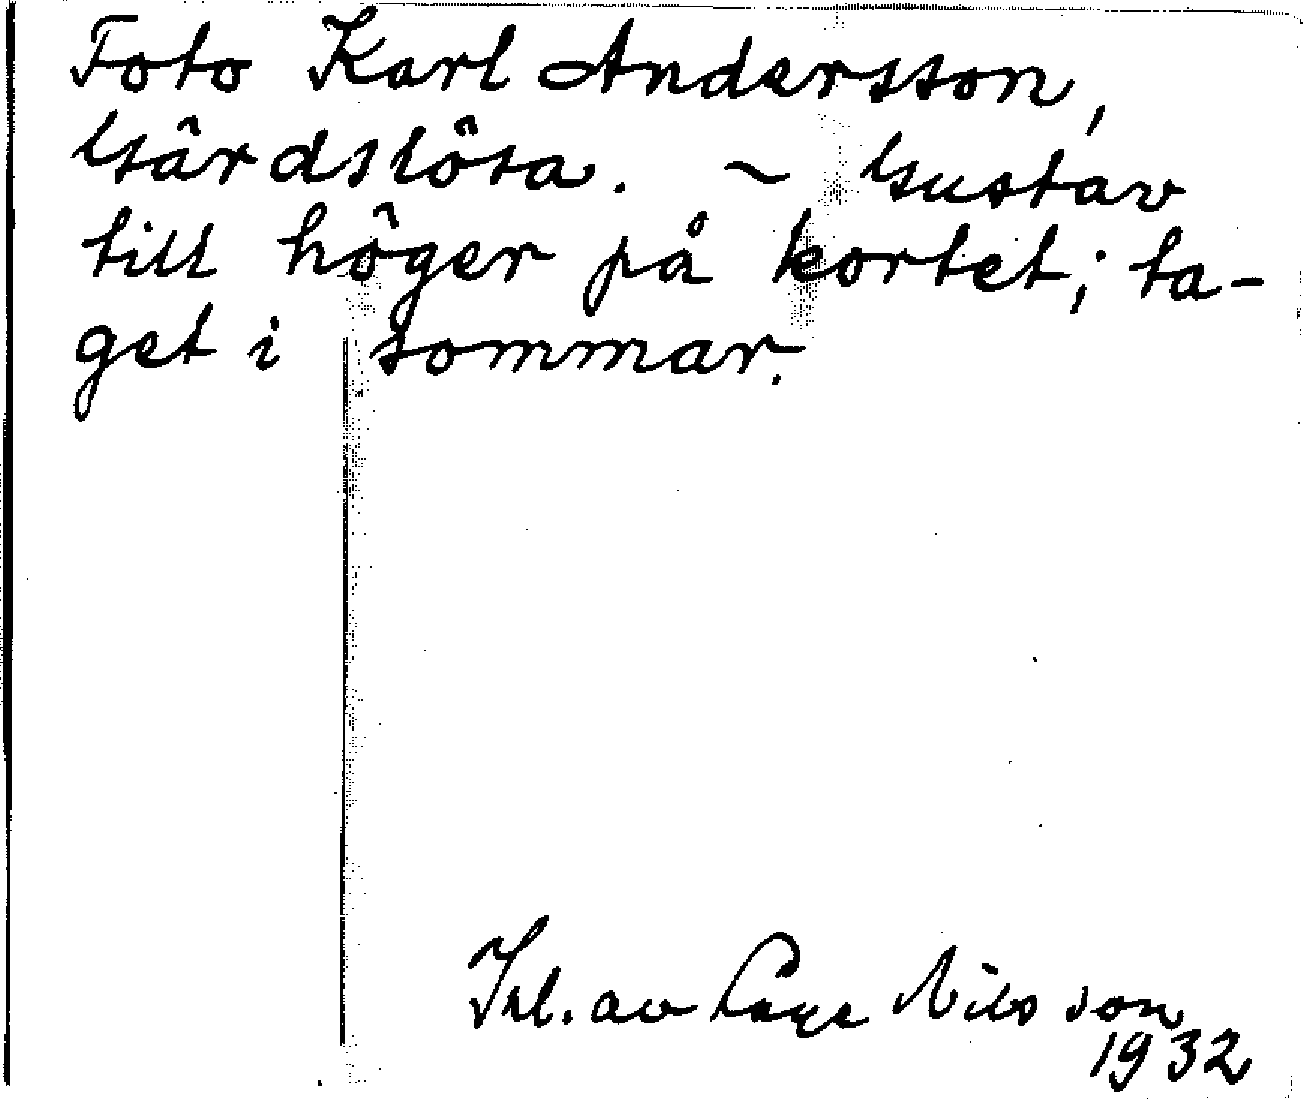 Foto Karl Andersson,
Gärdslösa. ~ Gustav
till höger på kortet; ta-
get i sommar.
Inl. av Page Nilsson
1932